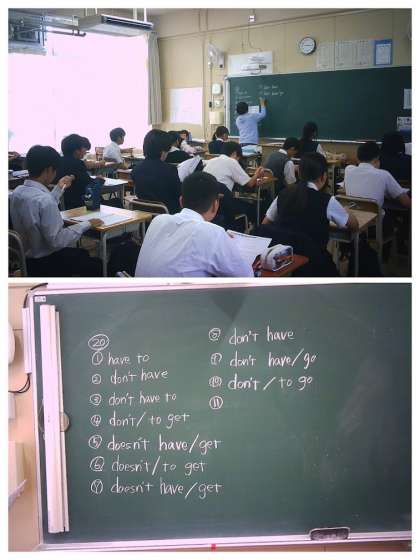 ⑳
① have to
② don't have
③ don't have to
④ don't / to get
⑤ doesn't have/get
⑥ doesn't / to get
⑦ doesn't have/get
⑧ don't have
⑨ don't have/go
⑩ don't / to go
⑪